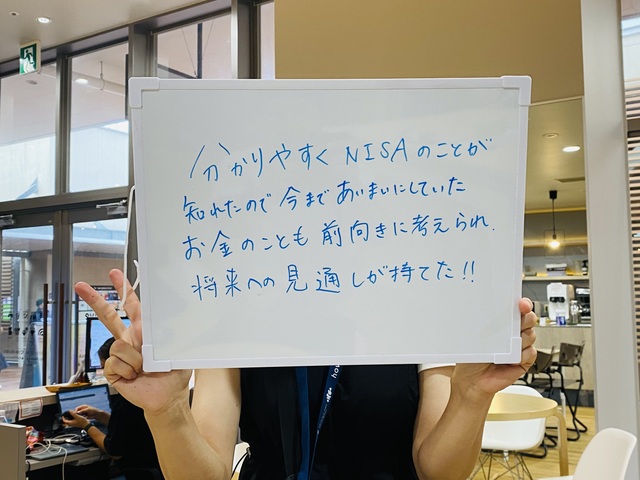 分かりやすく NISAのことが
知れたので 今まで あいまいにしていた
お金のことも 前向きに考えられ、
将来への見通しが持てた!!